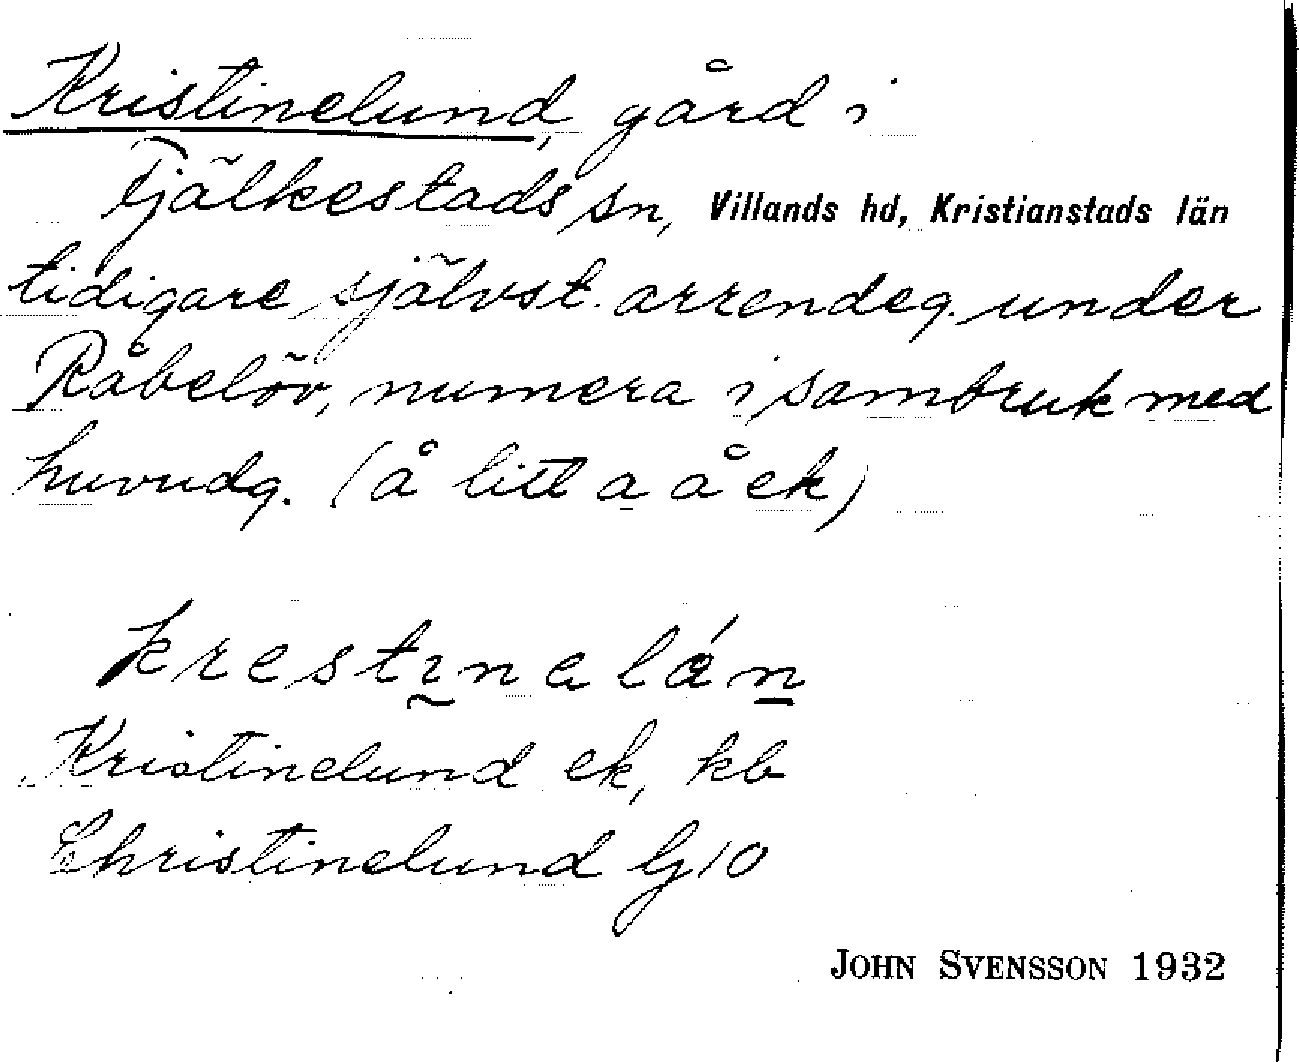 Kristinelund, gård i
Fjälkestads sn, Villands hd, Kristianstads län
tidigare självst. arrendeg. under
Råbelöv, numera i sambruk med
huvudg. (å litt a å ek)
krestinalån
Kristinelund ek, kb
Christinelund G10
JOHN SVENSSON 1932